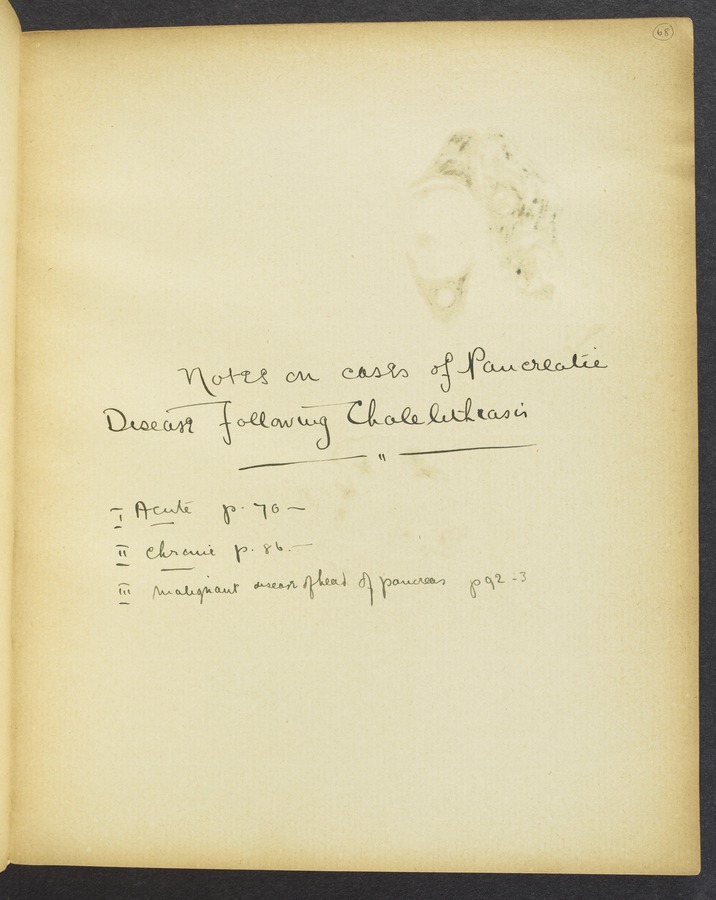 68
Notes on cases of Pancreatic
Disease following Cholelithiasis
"
I Acute p. 70 —
II Chronic p. 86. —
III Malignant disease of head of pancreas p 92-3